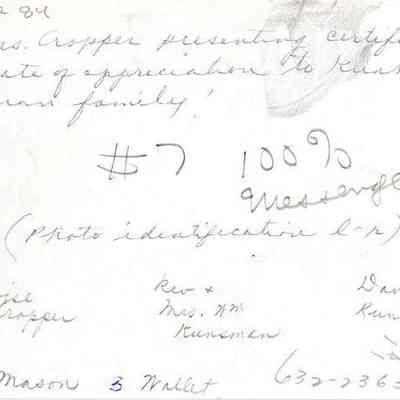 84
s. Cropper presenting certifi
ate of appreciation to Kuns
man family!
#7 100%
Messenge
(Photo identification l-r)
Rev + Dav
Cropper Mrs. Wm Kun
Kunsman
Mason 3 Wallet 632-236